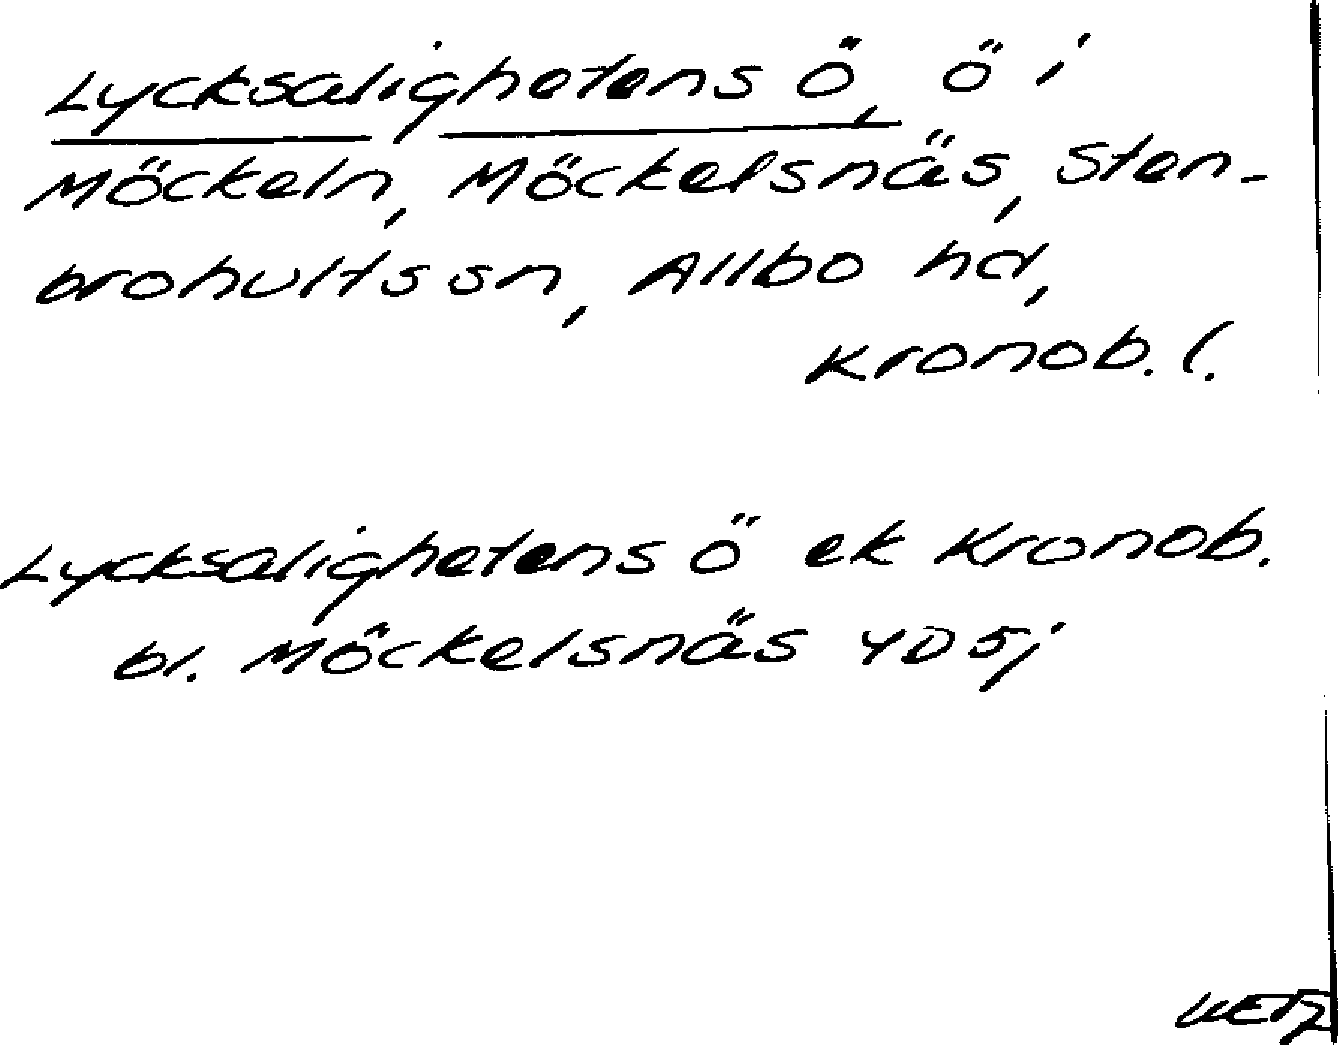 Lycksalighetens Ö, ö i
Möckeln, Möckelsnäs, Sten-
brohults sn, Allbo hd,
Kronob. l.
Lycksalighetens ö ek Kronob.
bl. Möckelsnäs 4D5j